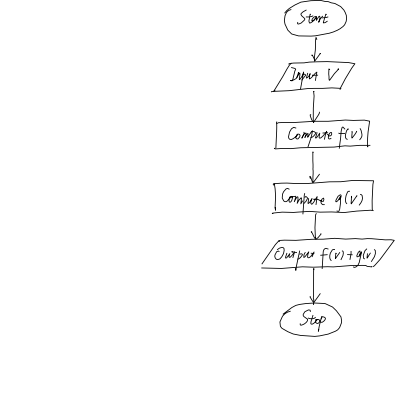 Start
Input V
Compute f(v)
Compute g(v)
Output f(v)+g(v)
Stop